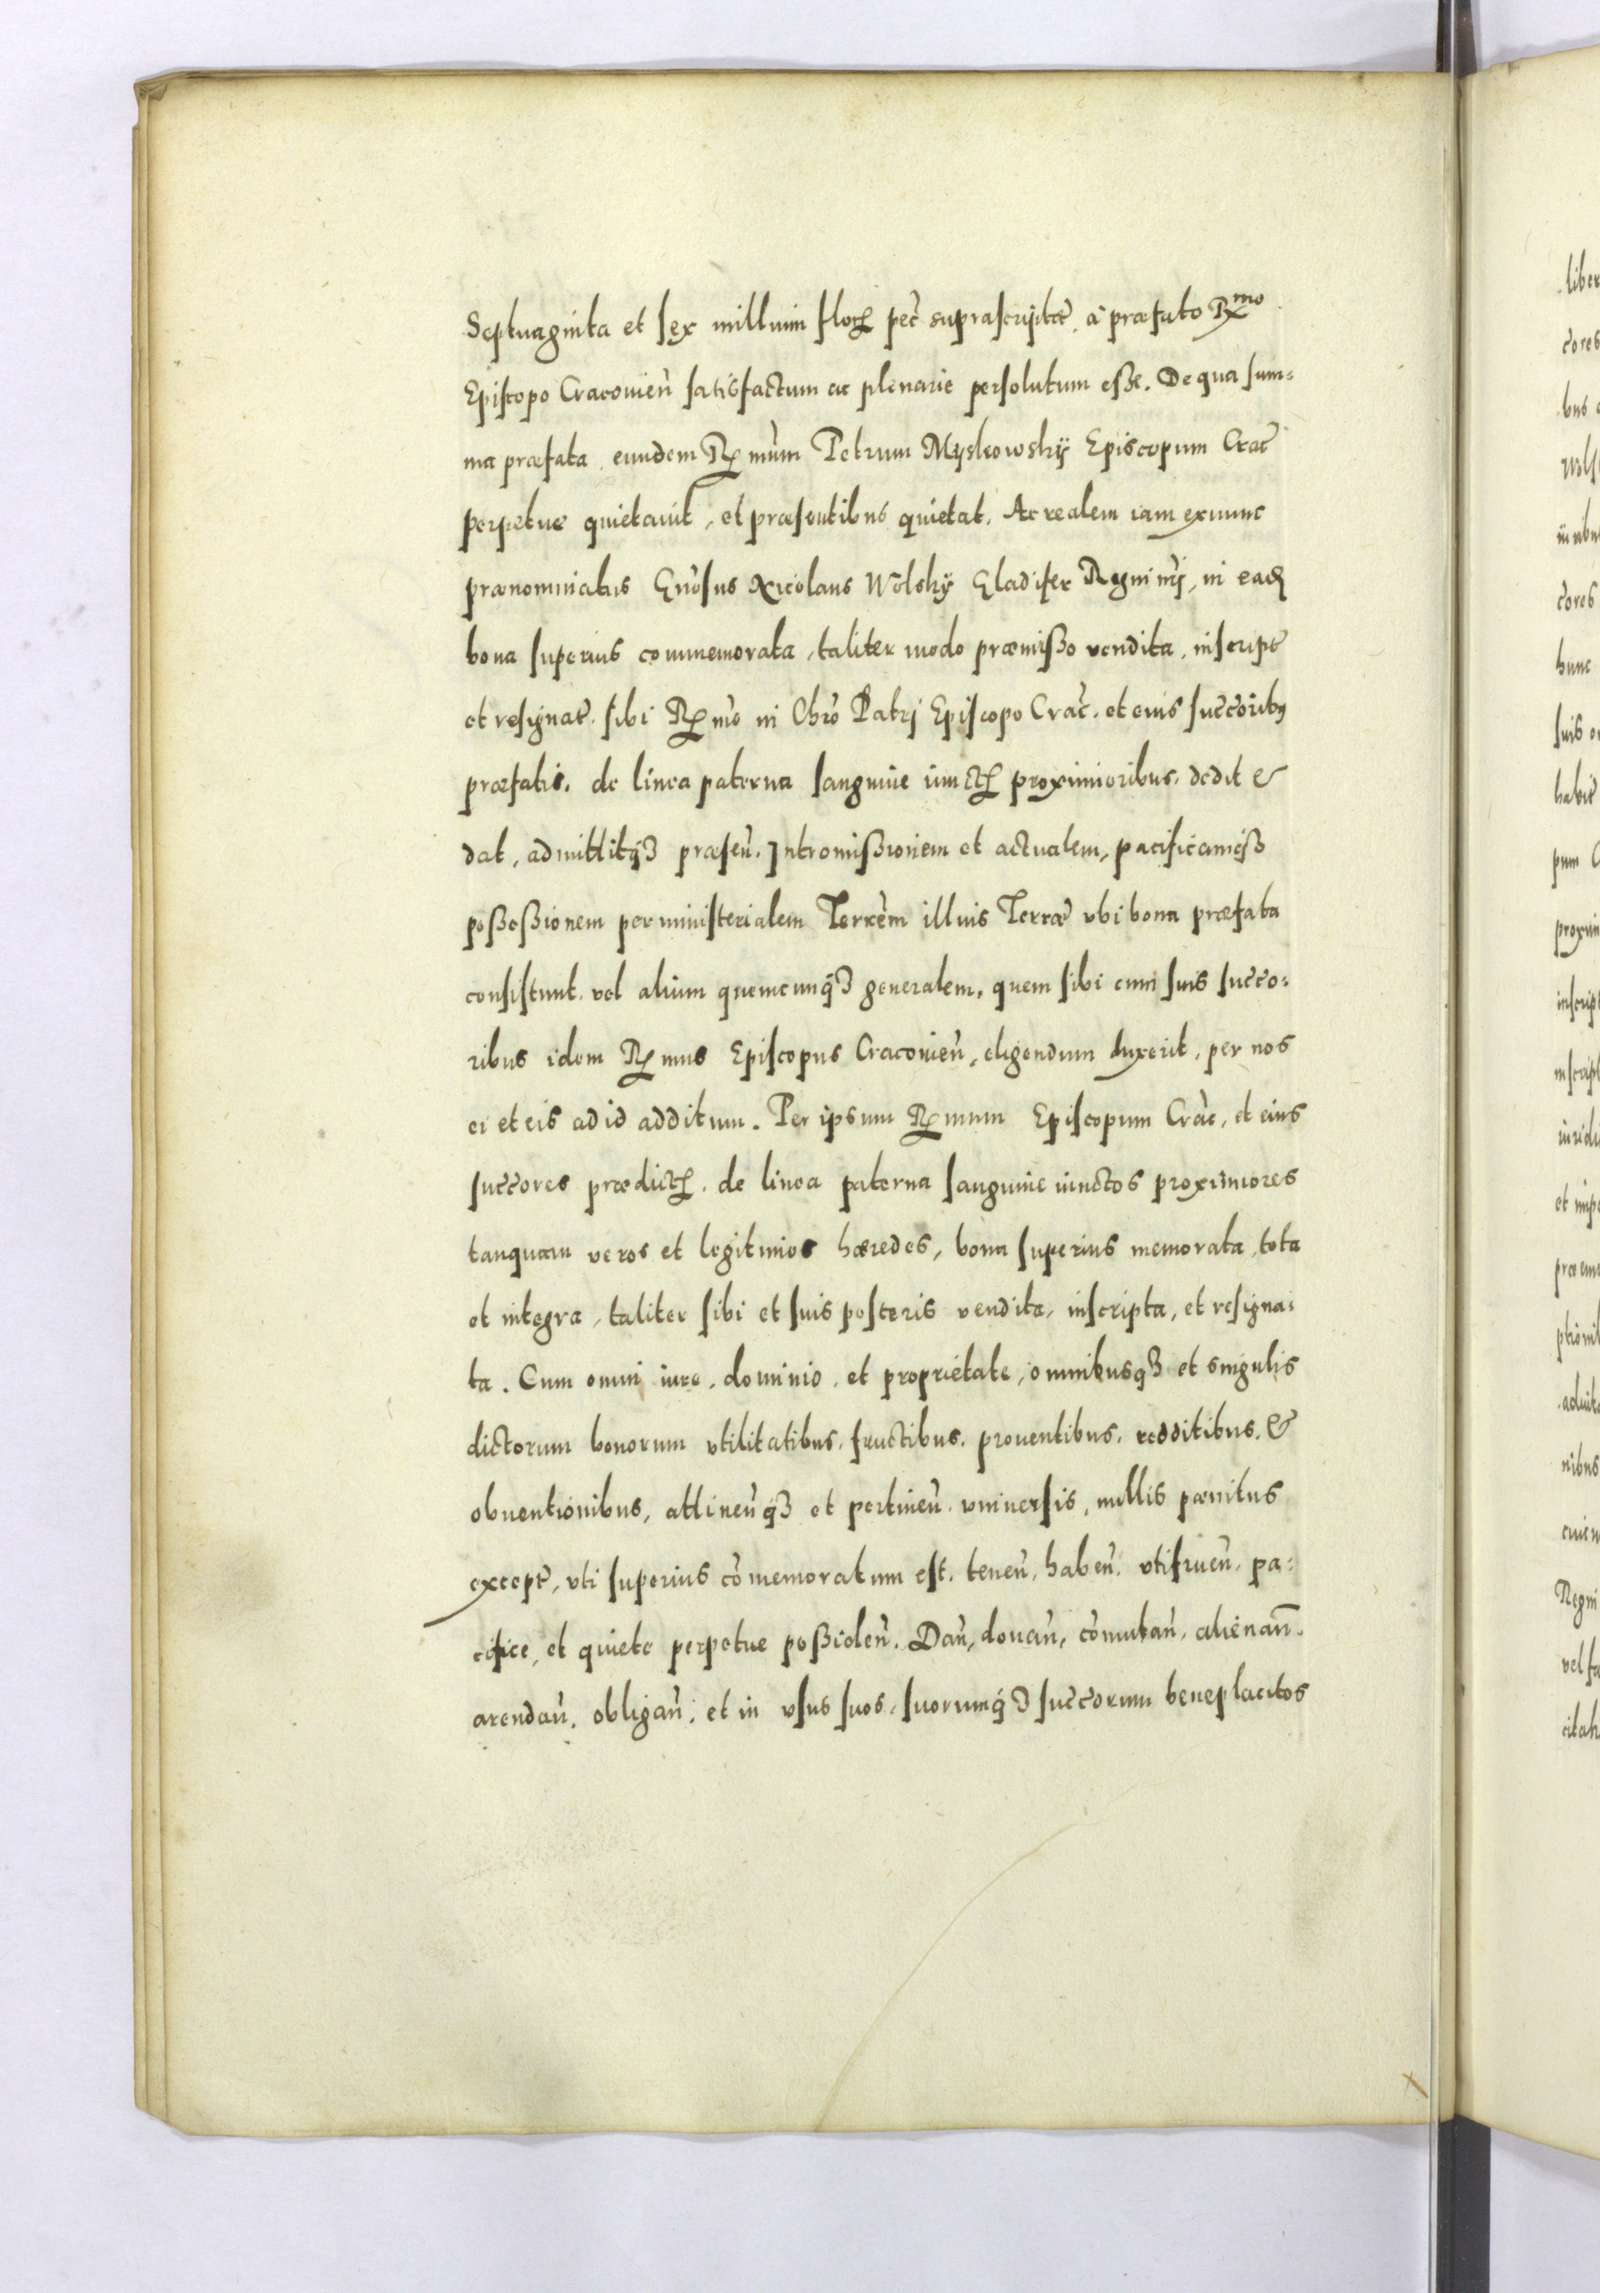 Septuaginta et sex millium floꝝ pec̃ suprascriptæ, à præfato Rmo
Episcopo Cracovień satisfactum ac plenarie persolutum esse. De qua sum=
ma præfata, eundem Rmum Petrum Myskowskÿ Episcopum Crac̃
perpetue quietavit, et præsentibus quietat. Ac realem iam exnunc
prænominatus Gnosus Nicolaus Wolskÿ Gladifer Regni nrj, in eadē
bona superius commemorata, taliter modo præmisso vendita, inscript̃
et resignat̃. sibi Rmo in Chrõ Patrj Episcopo Crac̃. et eius succõribꝫ
præfatis. de linea paterna sanguine iunctꝭ proximioribus. dedit &
dat, admittitqꝫ præseñ. Intromissionem et actualem, pacificamqꝫ
possessionem per ministerialem Terrẽm illius Terræ vbi bona præfata
consistunt. vel alium quemcunqꝫ generalem, quem sibi cum suis succo=
ribus idem Rmus Episcopus Cracovień, eligendum duxerit, per nos
ei et eis ad id additum. Per ipsum Rmum Episcopum Crac̃, et eius
succores prædictꝭ. de linea paterna sanguine iunctos proximiores
tanquam veros et legitimos hæredes, bona superius memorata, tota
et integra, taliter sibi et suis posteris vendita, inscripta, et resigna=
ta. Cum omni iure, dominio, et proprietate, omnibusqꝫ et singulis
dictorum bonorum vtilitatibus, fructibus, prouentibus, redditibus, &
obuentionibus, attineñqꝫ et pertineñ vniuersis, nullis pænitus
except̃, vti superius cõmemoratum est. teneñ, habeñ, vtifrueñ, pa=
cifice, et quiete perpetue possideñ. Dañ, donañ, cõmutañ, alienañ.
arendañ, obligañ, et in vsus suos, suorumqꝫ succorum beneplacitos